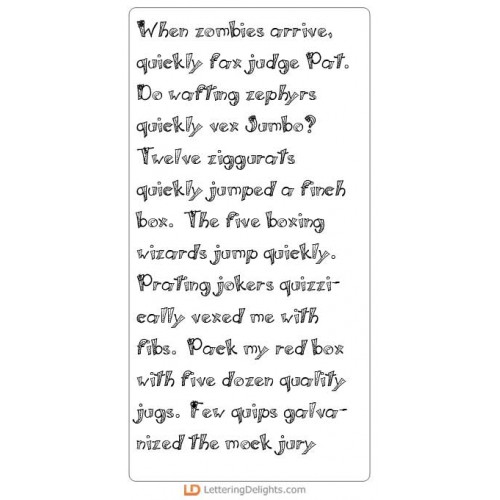 When zombies arrive,
quickly fax judge Pat.
Do wafting zephyrs
quickly vex Jumbo?
Twelve ziggurats
quickly jumped a finch
box. The five boxing
wizards jump quickly.
Prating jokers quizzi-
cally vexed me with
fibs. Pack my red box
with five dozen quality
jugs. Few quips galva-
nized the mock jury
LD LetteringDelights.com